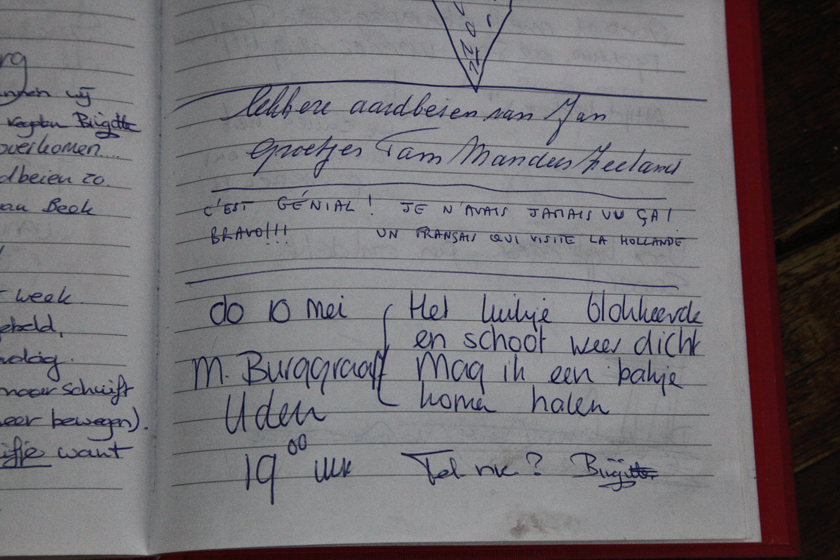 rg
nnen wij
Brigitte
overkomen...
dbeien zo
an Beek
week
ebeld,
maar schrijft
eer bewegen).
want
lekkere aardbeien van Jan
groetjes Tam Manders Zeeland
C'EST GÉNIAL! JE N'AVAIS JAMAIS VU ÇA!
BRAVO!!! UN FRANÇAIS QUI VISITE LA HOLLANDE
do 10 mei
M. Burggraaff
Uden
19 00 uur
Het luikje blokkeerde
en schoot weer dicht
Mag ik een bakje
komen halen
Tel nr.? Brigitte